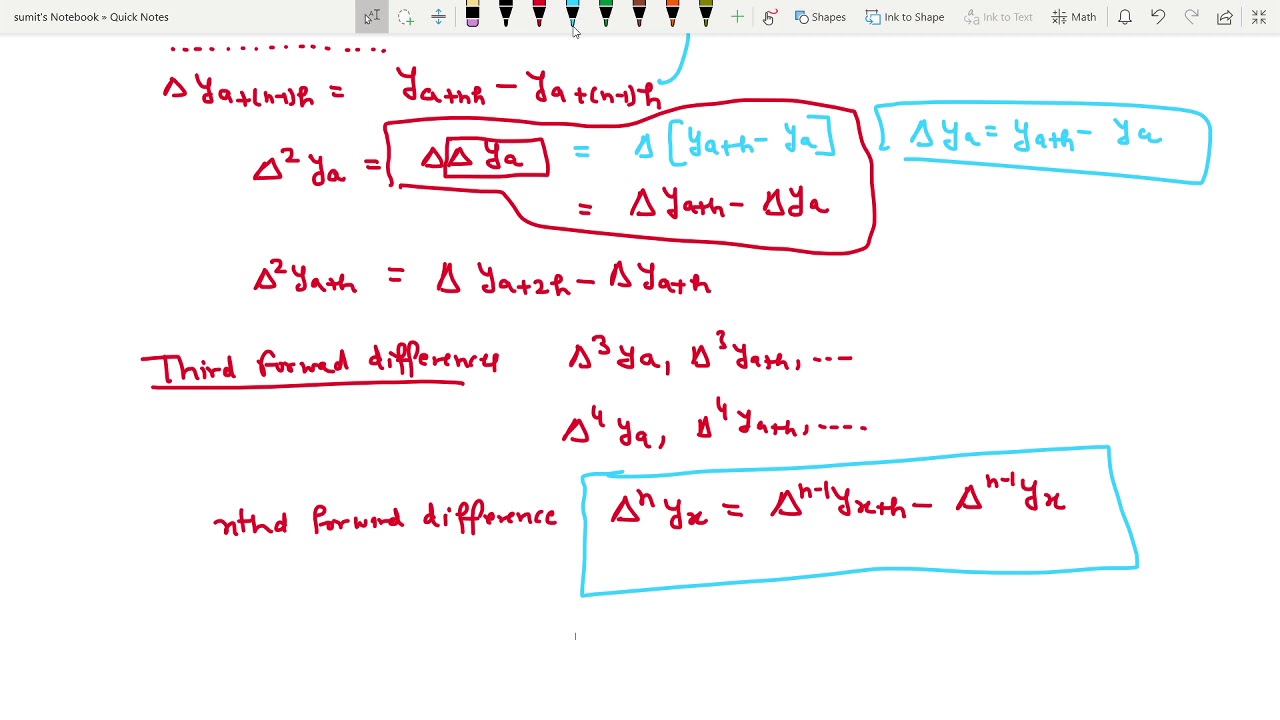 sumit's Notebook » Quick Notes
Shapes Ink to Shape Ink to Text Math
..................
Δ y_{a+(n-1)h} = y_{a+nh} - y_{a+(n-1)h}
Δ² y_a = Δ Δ y_a = Δ [y_{a+h} - y_a]
Δ y_a = y_{a+h} - y_a
= Δ y_{a+h} - Δ y_a
Δ² y_{a+h} = Δ y_{a+2h} - Δ y_{a+h}
Third forwad differences Δ³ y_a, Δ³ y_{a+h}, ....
Δ⁴ y_a, Δ⁴ y_{a+h}, .....
nthd forward difference Δⁿ y_x = Δ^{n-1} y_{x+h} - Δ^{n-1} y_x